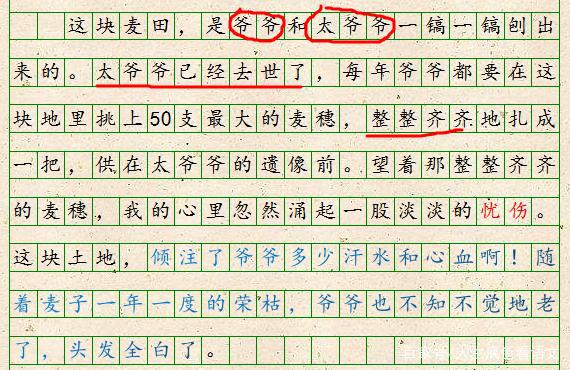 这块麦田，是爷爷和太爷爷一镐一镐刨出
来的。太爷爷已经去世了，每年爷爷都要在这
块地里挑上50支最大的麦穗，整整齐齐地扎成
一把，供在太爷爷的遗像前。望着那整整齐齐
的麦穗，我的心里忽然涌起一股淡淡的忧伤。
这块土地，倾注了爷爷多少汗水和心血啊！随
着麦子一年一度的荣枯，爷爷也不知不觉地老
了，头发全白了。